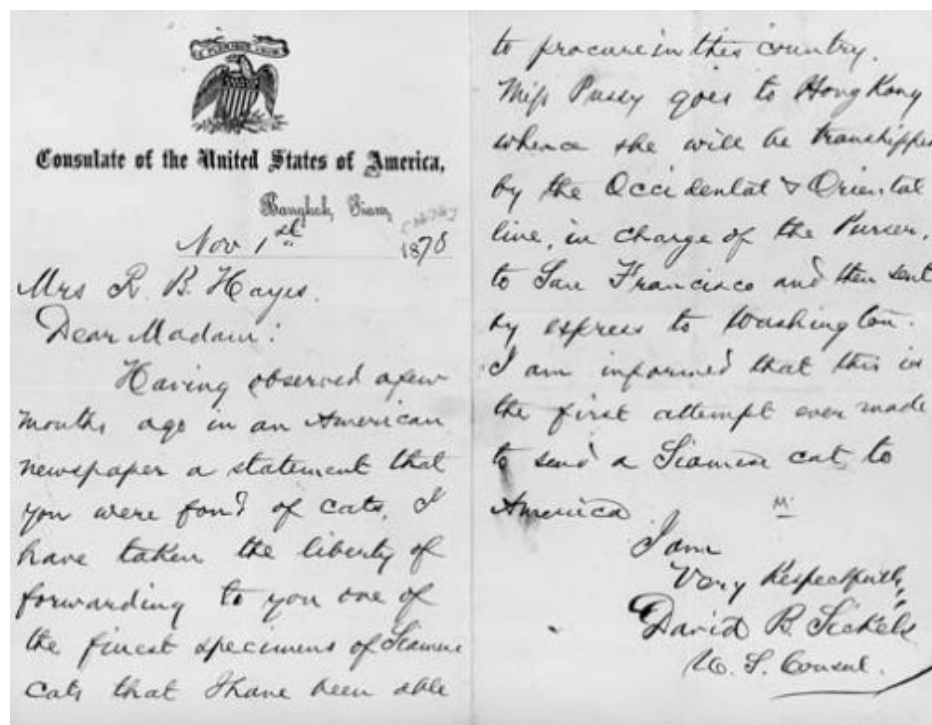 E PLURIBUS UNUM
Consulate of the United States of America,
Bangkok, Siam,
Nov 1st 1878
Mrs R. B. Hayes.
Dear Madam:
Having observed a few
months ago in an American
newspaper a statement that
you were fond of cats, I
have taken the liberty of
forwarding to you one of
the finest specimens of Siamese
cats that I have been able
to procure in this country.
Miss Pussy goes to Hong Kong
whence she will be transhipped
by the Occidental & Oriental
line, in charge of the Purser,
to San Francisco and then sent
by express to Washington.
I am informed that this is
the first attempt ever made
to send a Siamese cat to
America
I am
Very Respectfully,
David B. Sickels
U. S. Consul.